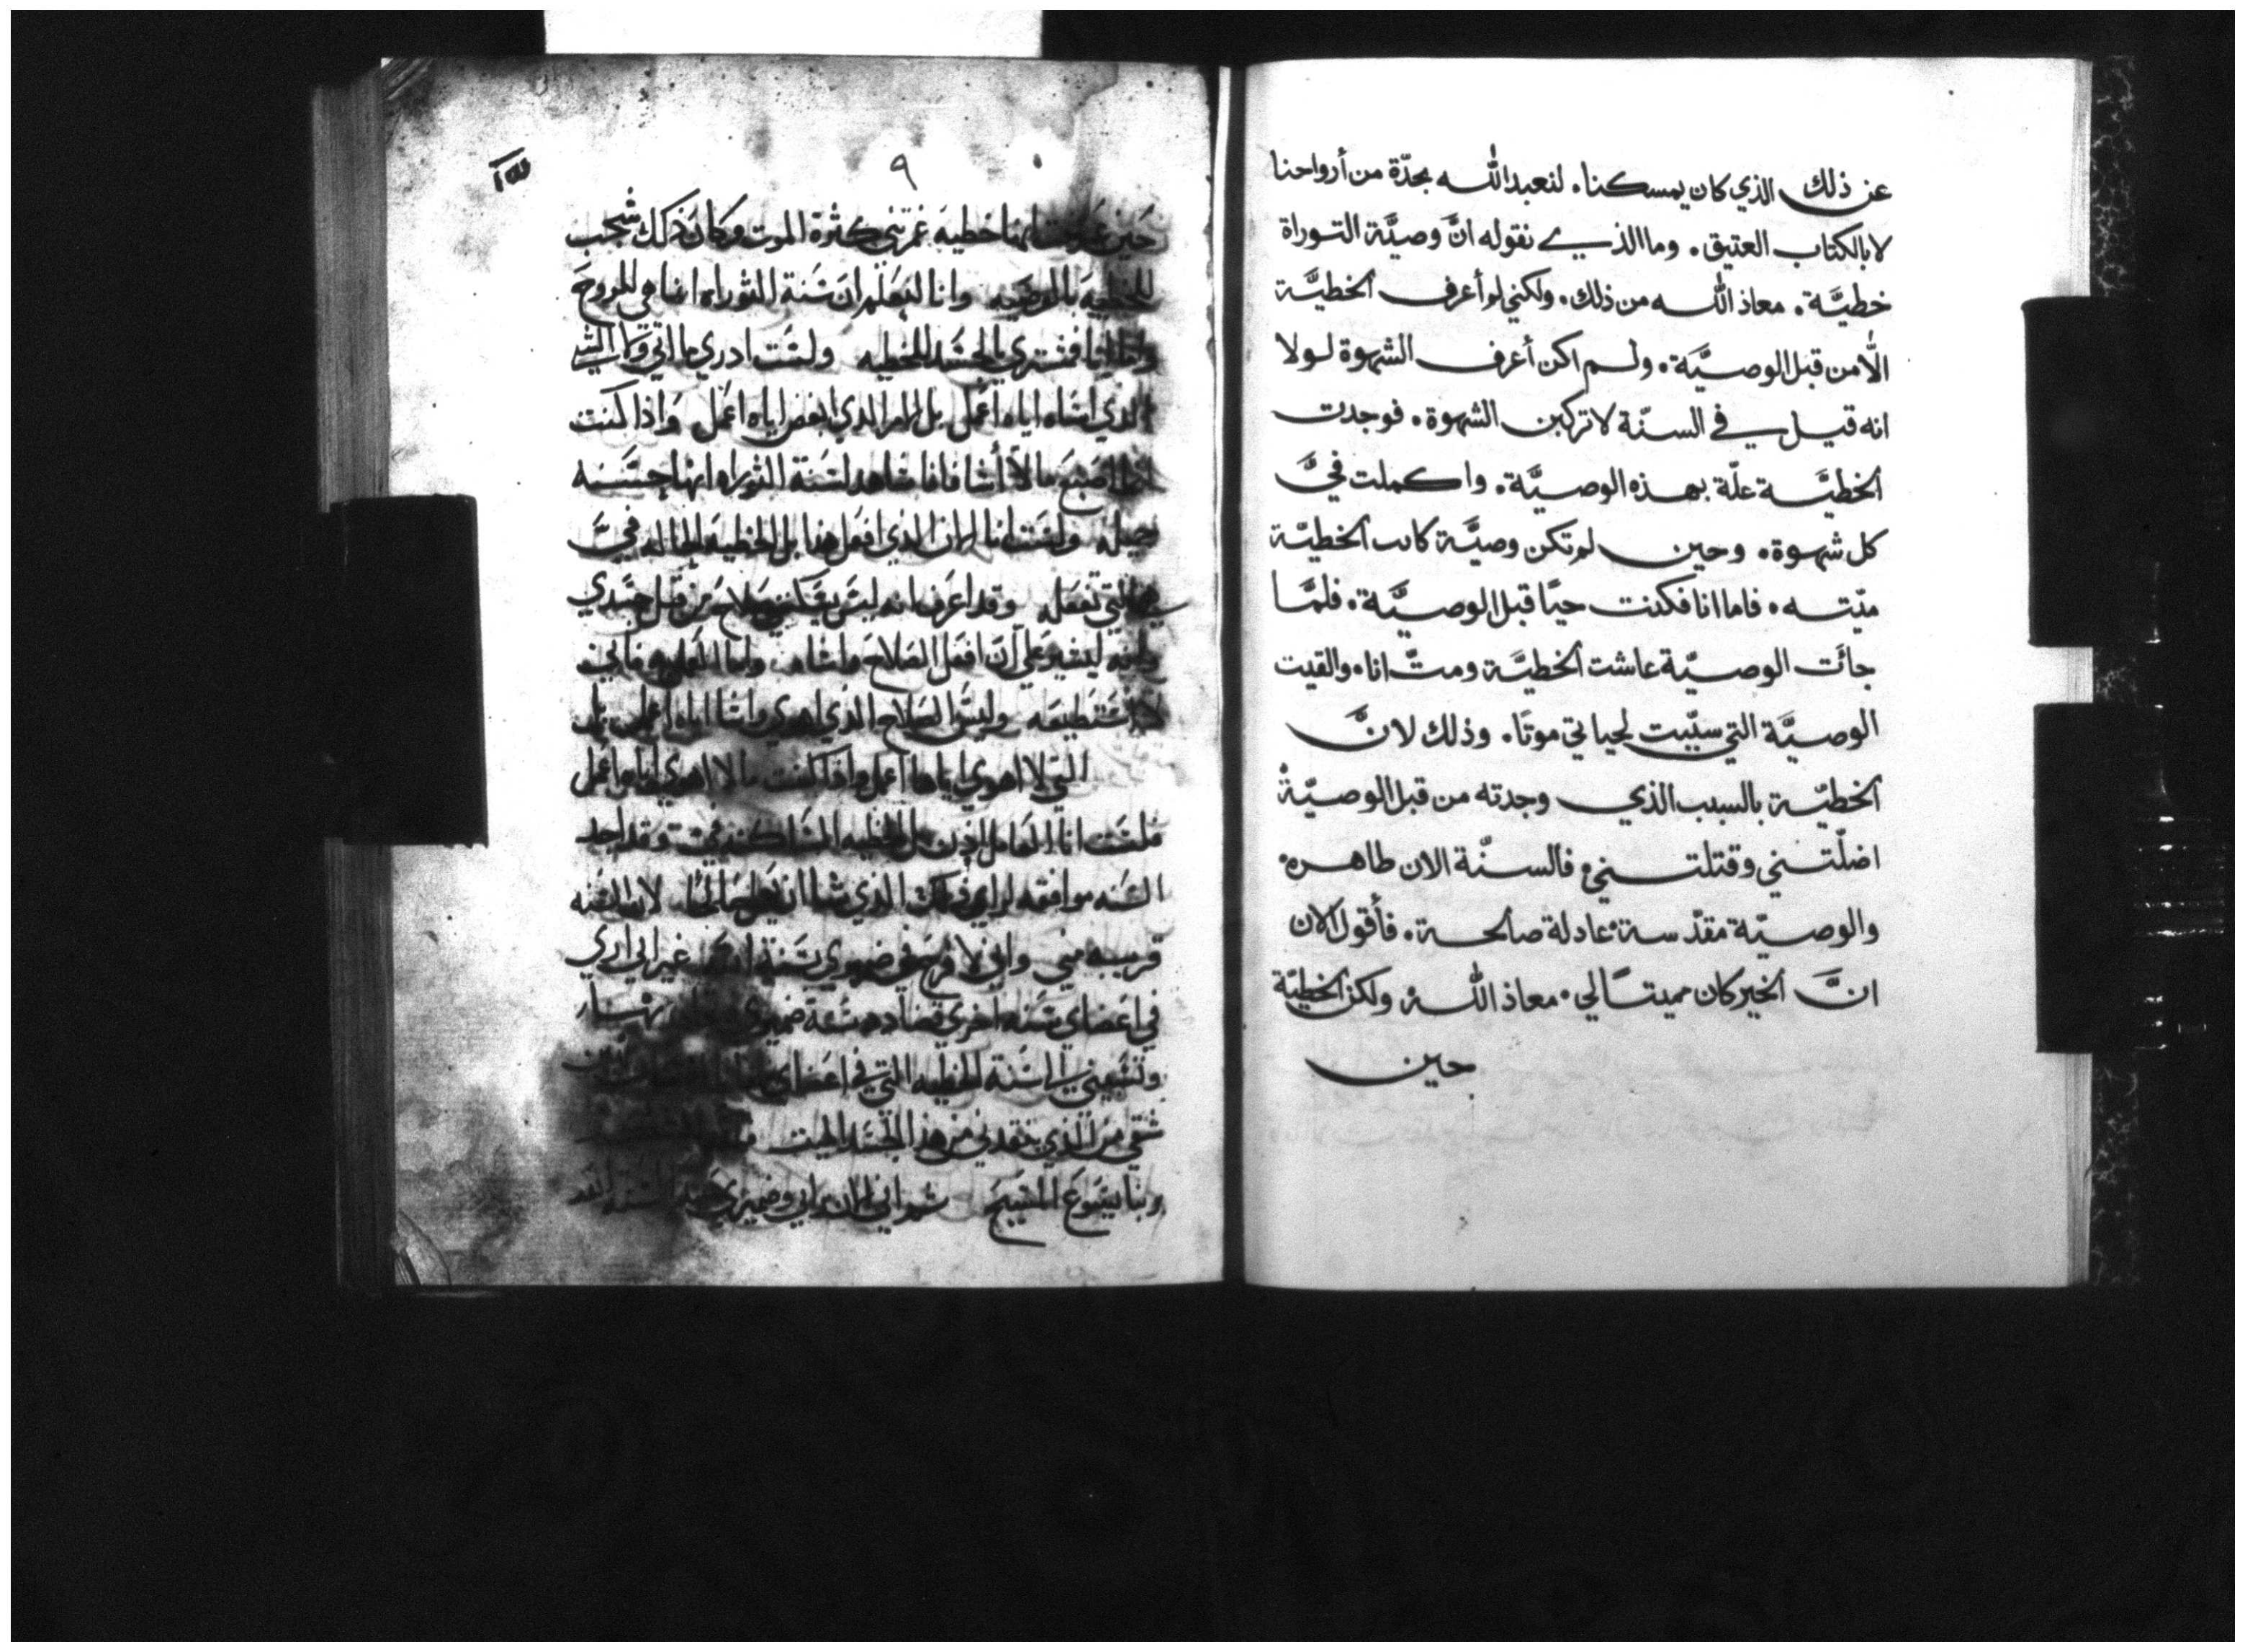 عن ذلك الذي كان يمسكنا. لنعبد الله بجدّة من أرواحنا
لا بالكتاب العتيق. وما الذي نقوله انَّ وصيَّة التوراة
خطيَّة. معاذ الله من ذلك. ولكني لم أعرف الخطيَّة
الّا من قبل الوصيَّة. ولم اكن أعرف الشهوة لولا
انه قيل في السنّة لا تركبن الشهوة. فوجدت
الخطيَّة علّة بهذه الوصيَّة. واكملت فيَّ
كل شهوة. وحين لم تكن وصيَّة كانت الخطيّة
ميّته. فاما انا فكنت حيًا قبل الوصيَّة. فلمَّا
جائَت الوصيّة عاشت الخطيَّة ومتّ انا. والقيت
الوصيَّة التي سيّبت لحياتي موتًا. وذلك لانَّ
الخطيّة بالسبب الذي وجدته من قبل الوصيّة
اضلّتني وقتلتني. فالسنّة الان طاهره.
والوصيّة مقدّسة عادلة صالحة. فأقول الان
انَّ الخير كان مميتًا لي. معاذ الله. ولكن الخطيّة
حين
٩
حين خطيه غمرتني كثرة الموت وكان ذلك شجب
للخطيه بالوصيه وانا لنعلم ان سنة التوراه انما هي للروح
وانما انا فمشتري بالجسد للخطيه ولست ادري ما اتي
الذي اشاه اياه اعمل بل الامر الذي ابغض اياه اعمل واذا كنت
اصنع ما لا أشا فانا شاهد لسنة التوراه انها حسنه
ولست انا الان الذي افعل هذا بل الخطيه الحاله فيَّ
هي التي تفعله وقد اعرف انه ليس صلاح من قبل جسدي
عليّ ان افعل الصلاح واشاه واما العمل به فاني
لا استطيعه وليس الصلاح الذي اهوي واشا اياه اعمل بل
التي لا اهوي اياها اعمل واذا كنت ما لا اهوي اياه اعمل
فلست انا العامل الان بل الخطيه الساكنه فيّ وقد اجد
السنه موافقه لراي الذي شا ان لان السنه
قريبه مني واني لافرح في ضميري بسنة الله غير اني اري
في اعضاي سنه اخري تضادد سنة ضميري
وتسبيني الي سنة الخطيه التي في اعضاي
شقي من الذي ينقدني من هذا الجسد الميت
ربنا يسوع المسيح